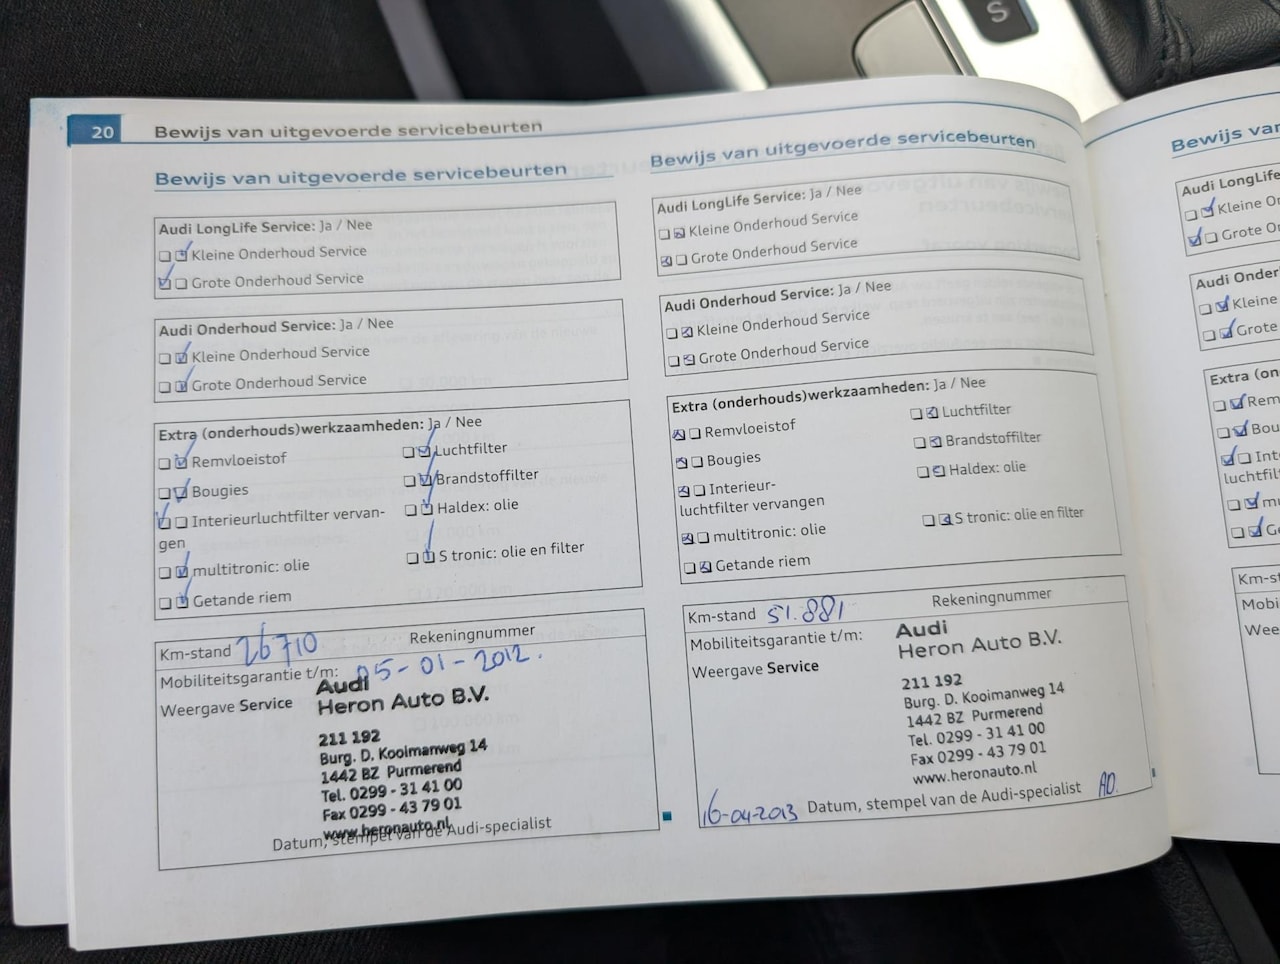 S
20 Bewijs van uitgevoerde servicebeurten
Bewijs van uitgevoerde servicebeurten
Audi LongLife Service: Ja / Nee
Kleine Onderhoud Service
Grote Onderhoud Service
Audi Onderhoud Service: Ja / Nee
Kleine Onderhoud Service
Grote Onderhoud Service
Extra (onderhouds)werkzaamheden: Ja / Nee
Remvloeistof
Bougies
Interieurluchtfilter vervan-
gen
multitronic: olie
Getande riem
Luchtfilter
Brandstoffilter
Haldex: olie
S tronic: olie en filter
Km-stand 26710 Rekeningnummer
Mobiliteitsgarantie t/m: 05-01-2012.
Weergave Service
Audi
Heron Auto B.V.
211 192
Burg. D. Kooimanweg 14
1442 BZ Purmerend
Tel. 0299 - 31 41 00
Fax 0299 - 43 79 01
www.heronauto.nl
Datum, stempel van de Audi-specialist
Bewijs van uitgevoerde servicebeurten
Audi LongLife Service: Ja / Nee
Kleine Onderhoud Service
Grote Onderhoud Service
Audi Onderhoud Service: Ja / Nee
Kleine Onderhoud Service
Grote Onderhoud Service
Extra (onderhouds)werkzaamheden: Ja / Nee
Remvloeistof
Bougies
Interieur-
luchtfilter vervangen
multitronic: olie
Getande riem
Luchtfilter
Brandstoffilter
Haldex: olie
S tronic: olie en filter
Km-stand 51.881 Rekeningnummer
Mobiliteitsgarantie t/m:
Weergave Service
Audi
Heron Auto B.V.
211 192
Burg. D. Kooimanweg 14
1442 BZ Purmerend
Tel. 0299 - 31 41 00
Fax 0299 - 43 79 01
www.heronauto.nl
16-04-2013 Datum, stempel van de Audi-specialist AD.
Bewijs var
Audi LongLife
Kleine O
Grote O
Audi Onder
Kleine
Grote
Extra (on
Rem
Bou
Int
luchtfil
mu
Ge
Km-s
Mobi
Wee